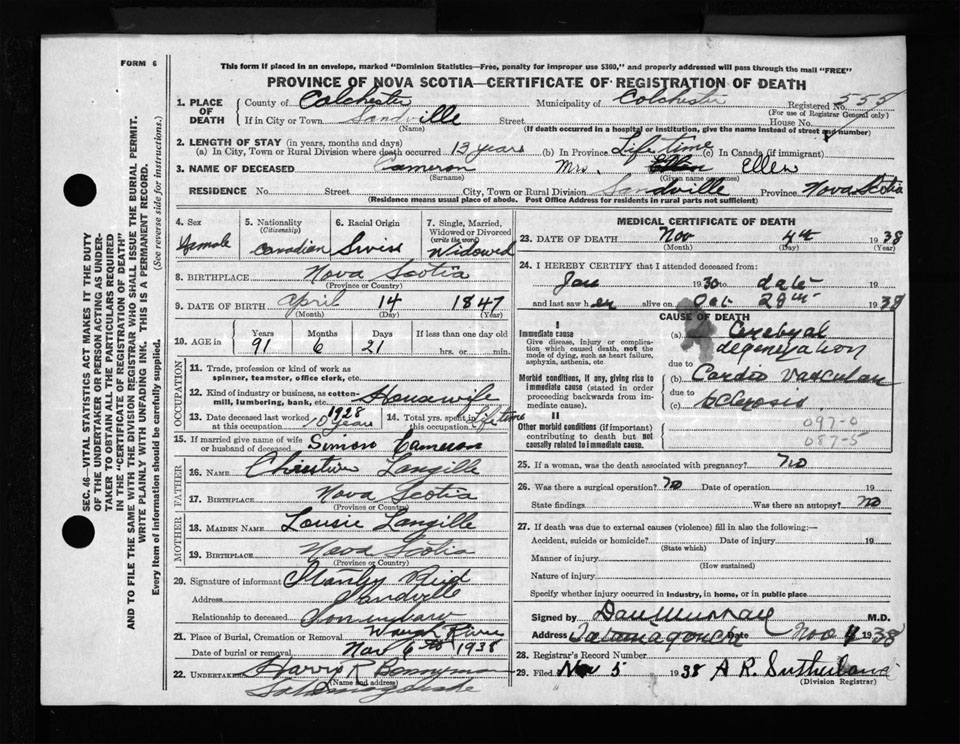 FORM 6
This form if placed in an envelope, marked "Dominion Statistics—Free, penalty for improper use $300," and properly addressed will pass through the mail "FREE"
PROVINCE OF NOVA SCOTIA—CERTIFICATE OF REGISTRATION OF DEATH
1. PLACE OF DEATH County of Colchester Municipality of Colchester Registered No. 555
(For use of Registrar General only)
If in City or Town Sandville Street House No.
(Name) (If death occurred in a hospital or institution, give the name instead of street and number)
2. LENGTH OF STAY (in years, months and days)
(a) In City, Town or Rural Division where death occurred 13 years (b) In Province Lifetime (c) In Canada (if immigrant)
3. NAME OF DECEASED Cameron Mrs. Ellen Ellen
(Surname) (Given names)
RESIDENCE No. Street City, Town or Rural Division Sandville Province Nova Scotia
(Residence means usual place of abode. Post Office Address for residents in rural parts not sufficient)
4. Sex Female
5. Nationality (Citizenship) Canadian
6. Racial Origin Swiss
7. Single, Married, Widowed or Divorced (write the word) Widowed
8. BIRTHPLACE Nova Scotia
(Province or Country)
9. DATE OF BIRTH April 14 1847
(Month) (Day) (Year)
10. AGE in Years Months Days If less than one day old
91 6 21 hrs. or min.
OCCUPATION
11. Trade, profession or kind of work as
spinner, teamster, office clerk, etc.
12. Kind of industry or business, as cotton-
mill, lumbering, bank, etc. Housewife
13. Date deceased last worked at this occupation 1928 10 years
14. Total yrs. spent in this occupation Lifetime
15. If married give name of wife or husband of deceased Simon Cameron
FATHER
16. NAME Christian Langille
17. BIRTHPLACE Nova Scotia
(Province or Country)
MOTHER
18. MAIDEN NAME Lousie Langille
19. BIRTHPLACE Nova Scotia
(Province or Country)
20. Signature of informant Stanley Reid
Address Sandville
Relationship to deceased Son in law
21. Place of Burial, Cremation or Removal Waugh River
Date of burial or removal Nov 6th 1938
22. UNDERTAKER Harris R
MEDICAL CERTIFICATE OF DEATH
23. DATE OF DEATH Nov 4th 1938
(Month) (Day) (Year)
24. I HEREBY CERTIFY that I attended deceased from:
Jan 1930 to date
and last saw her alive on Oct 28th 1938
CAUSE OF DEATH
I
Immediate cause
Give disease, injury or complication which caused death, not the mode of dying, such as heart failure, asphyxia, asthenia, etc
(a) Cerebral degeneration
due to
Morbid conditions, if any, giving rise to immediate cause (stated in order proceeding backwards from immediate cause).
(b) Cardio vascular
due to
(c) sclerosis
II
Other morbid conditions (if important) contributing to death but not causally related to immediate cause.
097-0
087-5
25. If a woman, was the death associated with pregnancy? No
26. Was there a surgical operation? No Date of operation 19
State findings Was there an autopsy? No
27. If death was due to external causes (violence) fill in also the following:—
Accident, suicide or homicide? Date of injury 19
(State which)
Manner of injury
(How sustained)
Nature of injury
Specify whether injury occurred in Industry, in home, or in public place
Signed by Dan Murray M.D.
Address Tatamagouche Date Nov 4 1938
28. Registrar's Record Number
29. Filed Nov 5 1938 A R. Sutherland
(Division Registrar)
SEC. 46—VITAL STATISTICS ACT MAKES IT THE DUTY
OF THE UNDERTAKER OR PERSON ACTING AS UNDER-
TAKER TO OBTAIN ALL THE PARTICULARS REQUIRED
IN THE "CERTIFICATE OF REGISTRATION OF DEATH"
AND TO FILE THE SAME WITH THE DIVISION REGISTRAR WHO SHALL ISSUE THE BURIAL PERMIT.
WRITE PLAINLY WITH UNFADING INK. THIS IS A PERMANENT RECORD.
Every item of Information should be carefully supplied. (See reverse side for instructions.)